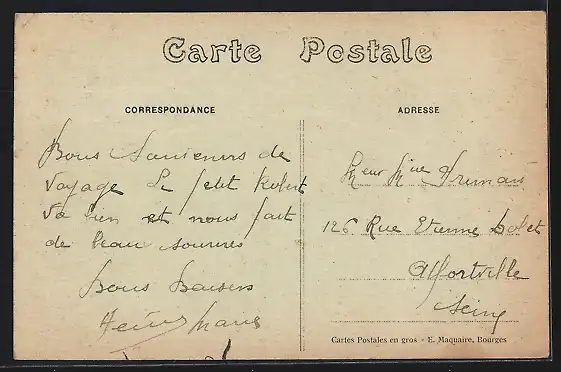 Carte Postale
CORRESPONDANCE
ADRESSE
Bons Souvenirs de
voyage Le petit Robert
va bien et nous fait
de beau sourires
Bons Baisers
126 Rue Etienne Dolet
Alfortville
Seine
Cartes Postales en gros - E. Maquaire, Bourges